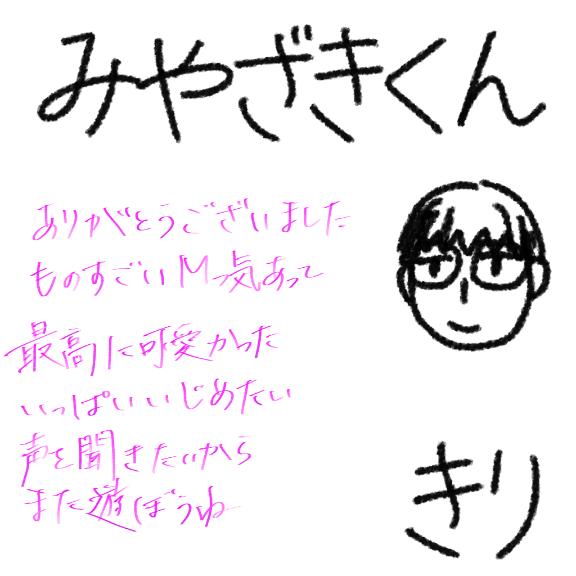 みやざきくん
ありがとうございました
ものすごいMっ気あって
最高に可愛かった
いっぱいいじめたい
声を聞きたいから
また遊ぼうね
きり